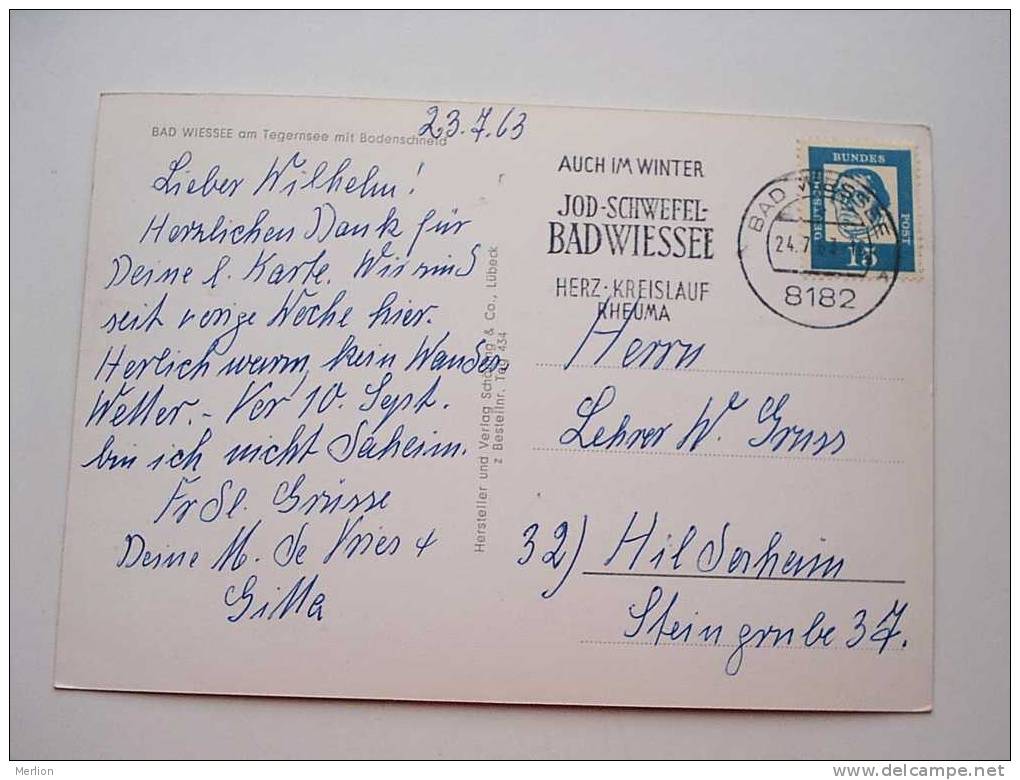 23.7.63
BAD WIESSEE am Tegernsee mit Bodenschneid
Lieber Wilhelm!
Herzlichen Dank für
Deine l. Karte. Wir sind
seit vorige Woche hier.
Herlich warm, kein Wander
Wetter. - Vor 10. Sept.
bin ich nicht daheim.
Frdl. Grüsse
Deine M. de Vries +
Gitta
Hersteller und Verlag Schöning & Co., Lübeck
Bestellnr. Teg 434
AUCH IM WINTER
JOD-SCHWEFEL-
BAD WIESSEE
HERZ·KREISLAUF
RHEUMA
DEUTSCHE
BUNDES
POST
15
BAD WIESSEE
24.7.
A
8182
Herrn
Lehrer W. Gruss
32) Hildesheim
Steingrube 37.
Merlion
www.delcampe.net